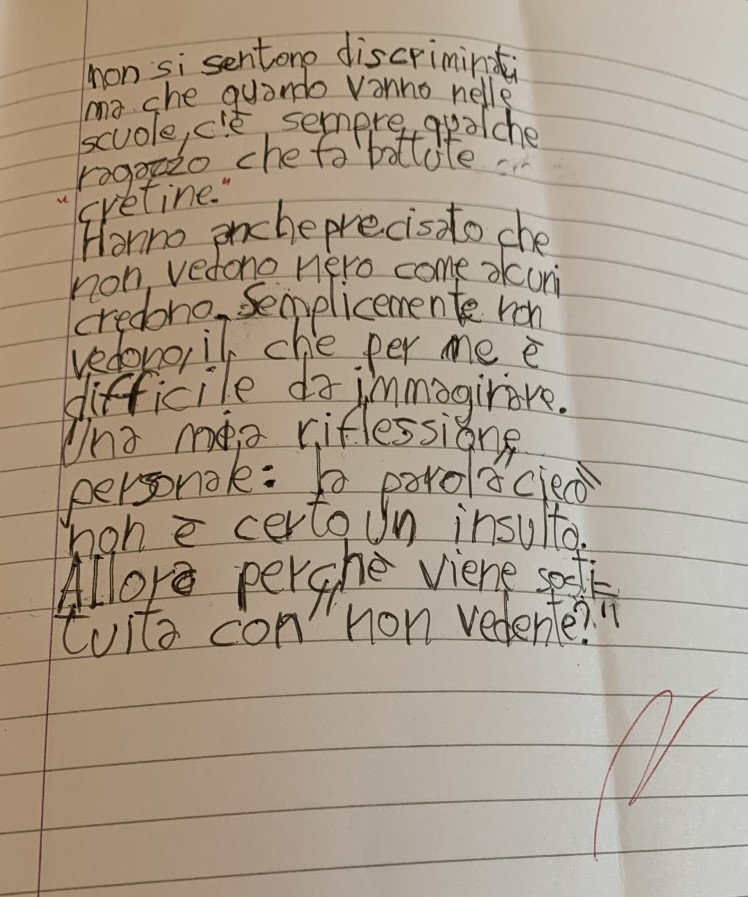 non si sentono discriminati
ma che quando vanno nelle
scuole, c'è sempre qualche
ragazzo che fa battute
"cretine."
Hanno anche precisato che
non vedono nero come alcuni
credono. Semplicemente non
vedono, il che per me è
difficile da immaginare.
Una mia riflessione
personale: la parola "cieco"
non è certo un insulto.
Allora perchè viene sosti=
tuita con "non vedente?"